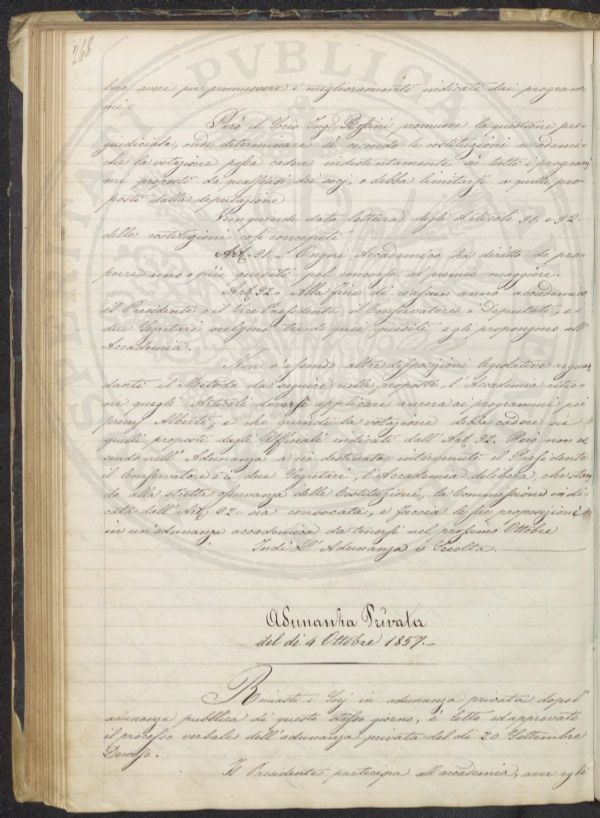 268
loro avere per promuovere i miglioramenti indicati dai program-
mi.
Però il Socio Ing. Rossini promuove la questione pre-
giudiciale, onde determinare se secondo le costituzioni accademi-
che la votazione possa cadere indistintamente su tutti i program-
mi proposti da qualsisia dei socj, o debba limitarsi a quelli pro-
posti dalla deputazione
Venne quindi data lettura degli Articoli 91. e 92.
delle costituzioni così concepiti
Art. 91. Ogni Accademico ha diritto di pro-
porre uno o più quesiti pel concorso al premio maggiore.
Art. 92. Alla fine di ciascun anno accademico
il Presidente o il Vice Presidente, il Conservatore i Deputati, e i
due Segretari scelgono tre di quei quesiti e gli propongono all'
Accademia.
Non v'essendo altre disposizioni legislative riguar-
danti il Metodo da seguire nelle proposte, l'Accademia ritie-
ne quegli Articoli doversi applicare ancora ai programmi pei
premj Alberti, e che quindi la votazione debba cadere su
quelli proposti dagli Uffiziali indicati dall'Art. 92. Però non es-
sendo nell'Adunanza a ciò destinata intervenuti il Presidente
il Conservatore e i due Segretari, l'Accademia delibera, che stan-
do alla stretta osservanza delle Costituzione, la Commissione indi-
cata dall'Art. 92 sia convocata, e faccia le sue proposizioni
in un'adunanza accademica da tenersi nel prossimo Ottobre
Indi L'Adunanza è Sciolta.
Adunanza Privata
del dì 4 Ottobre 1857.
Rimasti i Socj in adunanza privata dopo l'
adunanza pubblica di questo stesso giorno, è letto ed approvato
il processo verbale dell'adunanza privata del dì 20 Settembre
Decorso.
Il Presidente partecipa all'accademia, aver egli